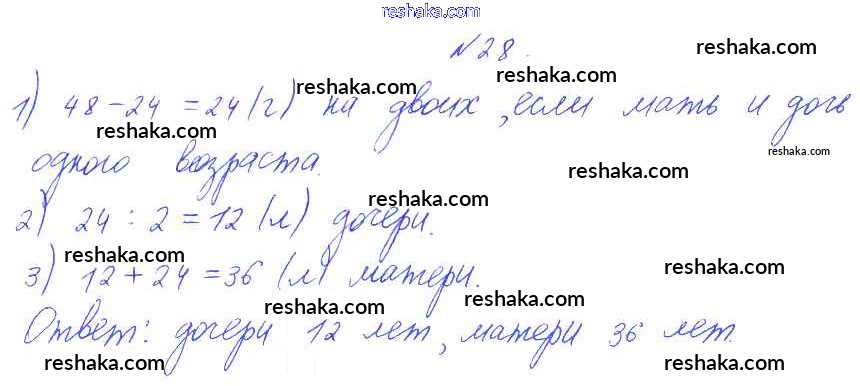 reshaka.com
№28.
reshaka.com
reshaka.com
1) 48-24 =24(г) на двоих, если мать и дочь
reshaka.com
reshaka.com
reshaka.com
одного возраста.
reshaka.com
reshaka.com
2) 24 : 2 = 12 (л) дочери.
reshaka.com
reshaka.com
3) 12 + 24 = 36 (л) матери.
reshaka.com
reshaka.com
Ответ: дочери 12 лет, матери 36 лет.
reshaka.com
reshaka.com
reshaka.com